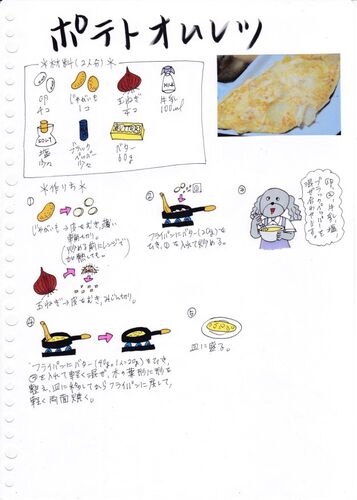 ポテトオムレツ
※材料(2人分)※
卵
4コ
じゃがいも
1コ
玉ねぎ
牛乳
100ml
MILK
SALT
塩
少々
ブラック
ペッパー
少々
BUTTER
バター
60g
※作り方※
①
じゃがいも→皮をむき、薄い
輪切り。
玉ねぎ→皮をむき、みじん切り。
②
フライパンにバター(20g)を
ひき、①を入れて炒める。
③
卵、②、牛乳、塩
ブラックペッパーを
混ぜ合わせます。
④
フライパンにバター(40g。1人=20g)をひき、
③を入れて軽く混ぜ、木の葉形に形を
整え、皿に移してからフライパンに戻して、
軽く両面焼く。
⑤
皿に盛る。